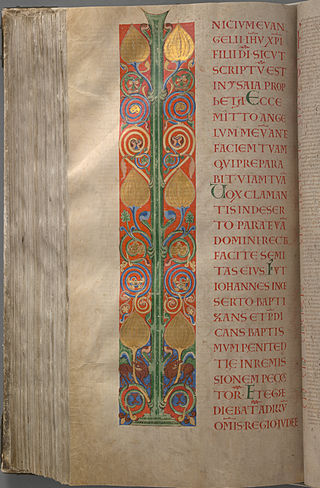 NICIVM EVAN
GELII IHV XPI
FILII DI SICVT
SCRIPTV EST
IN YSAIA PROP
HETA ECCE
MITTO ANGE
LVM MEV ANE
FACIEM TVAM
QVI PREPARA
BIT VIAM TVA
VOX CLAMAN
TIS IN DESER
TO PARATE VIA
DOMINI RECTE
FACITE SEMI
TAS EIVS FVIT
IOHANNES IN DE
SERTO BAPTI
ZANS ET PDI
CANS BAPTIS
MVM PENITEN
TIE IN REMIS
SIONEM PECCA
TOR ET EGRE
DIEBAT AD ILLV
OMIS REGIO IVDEE